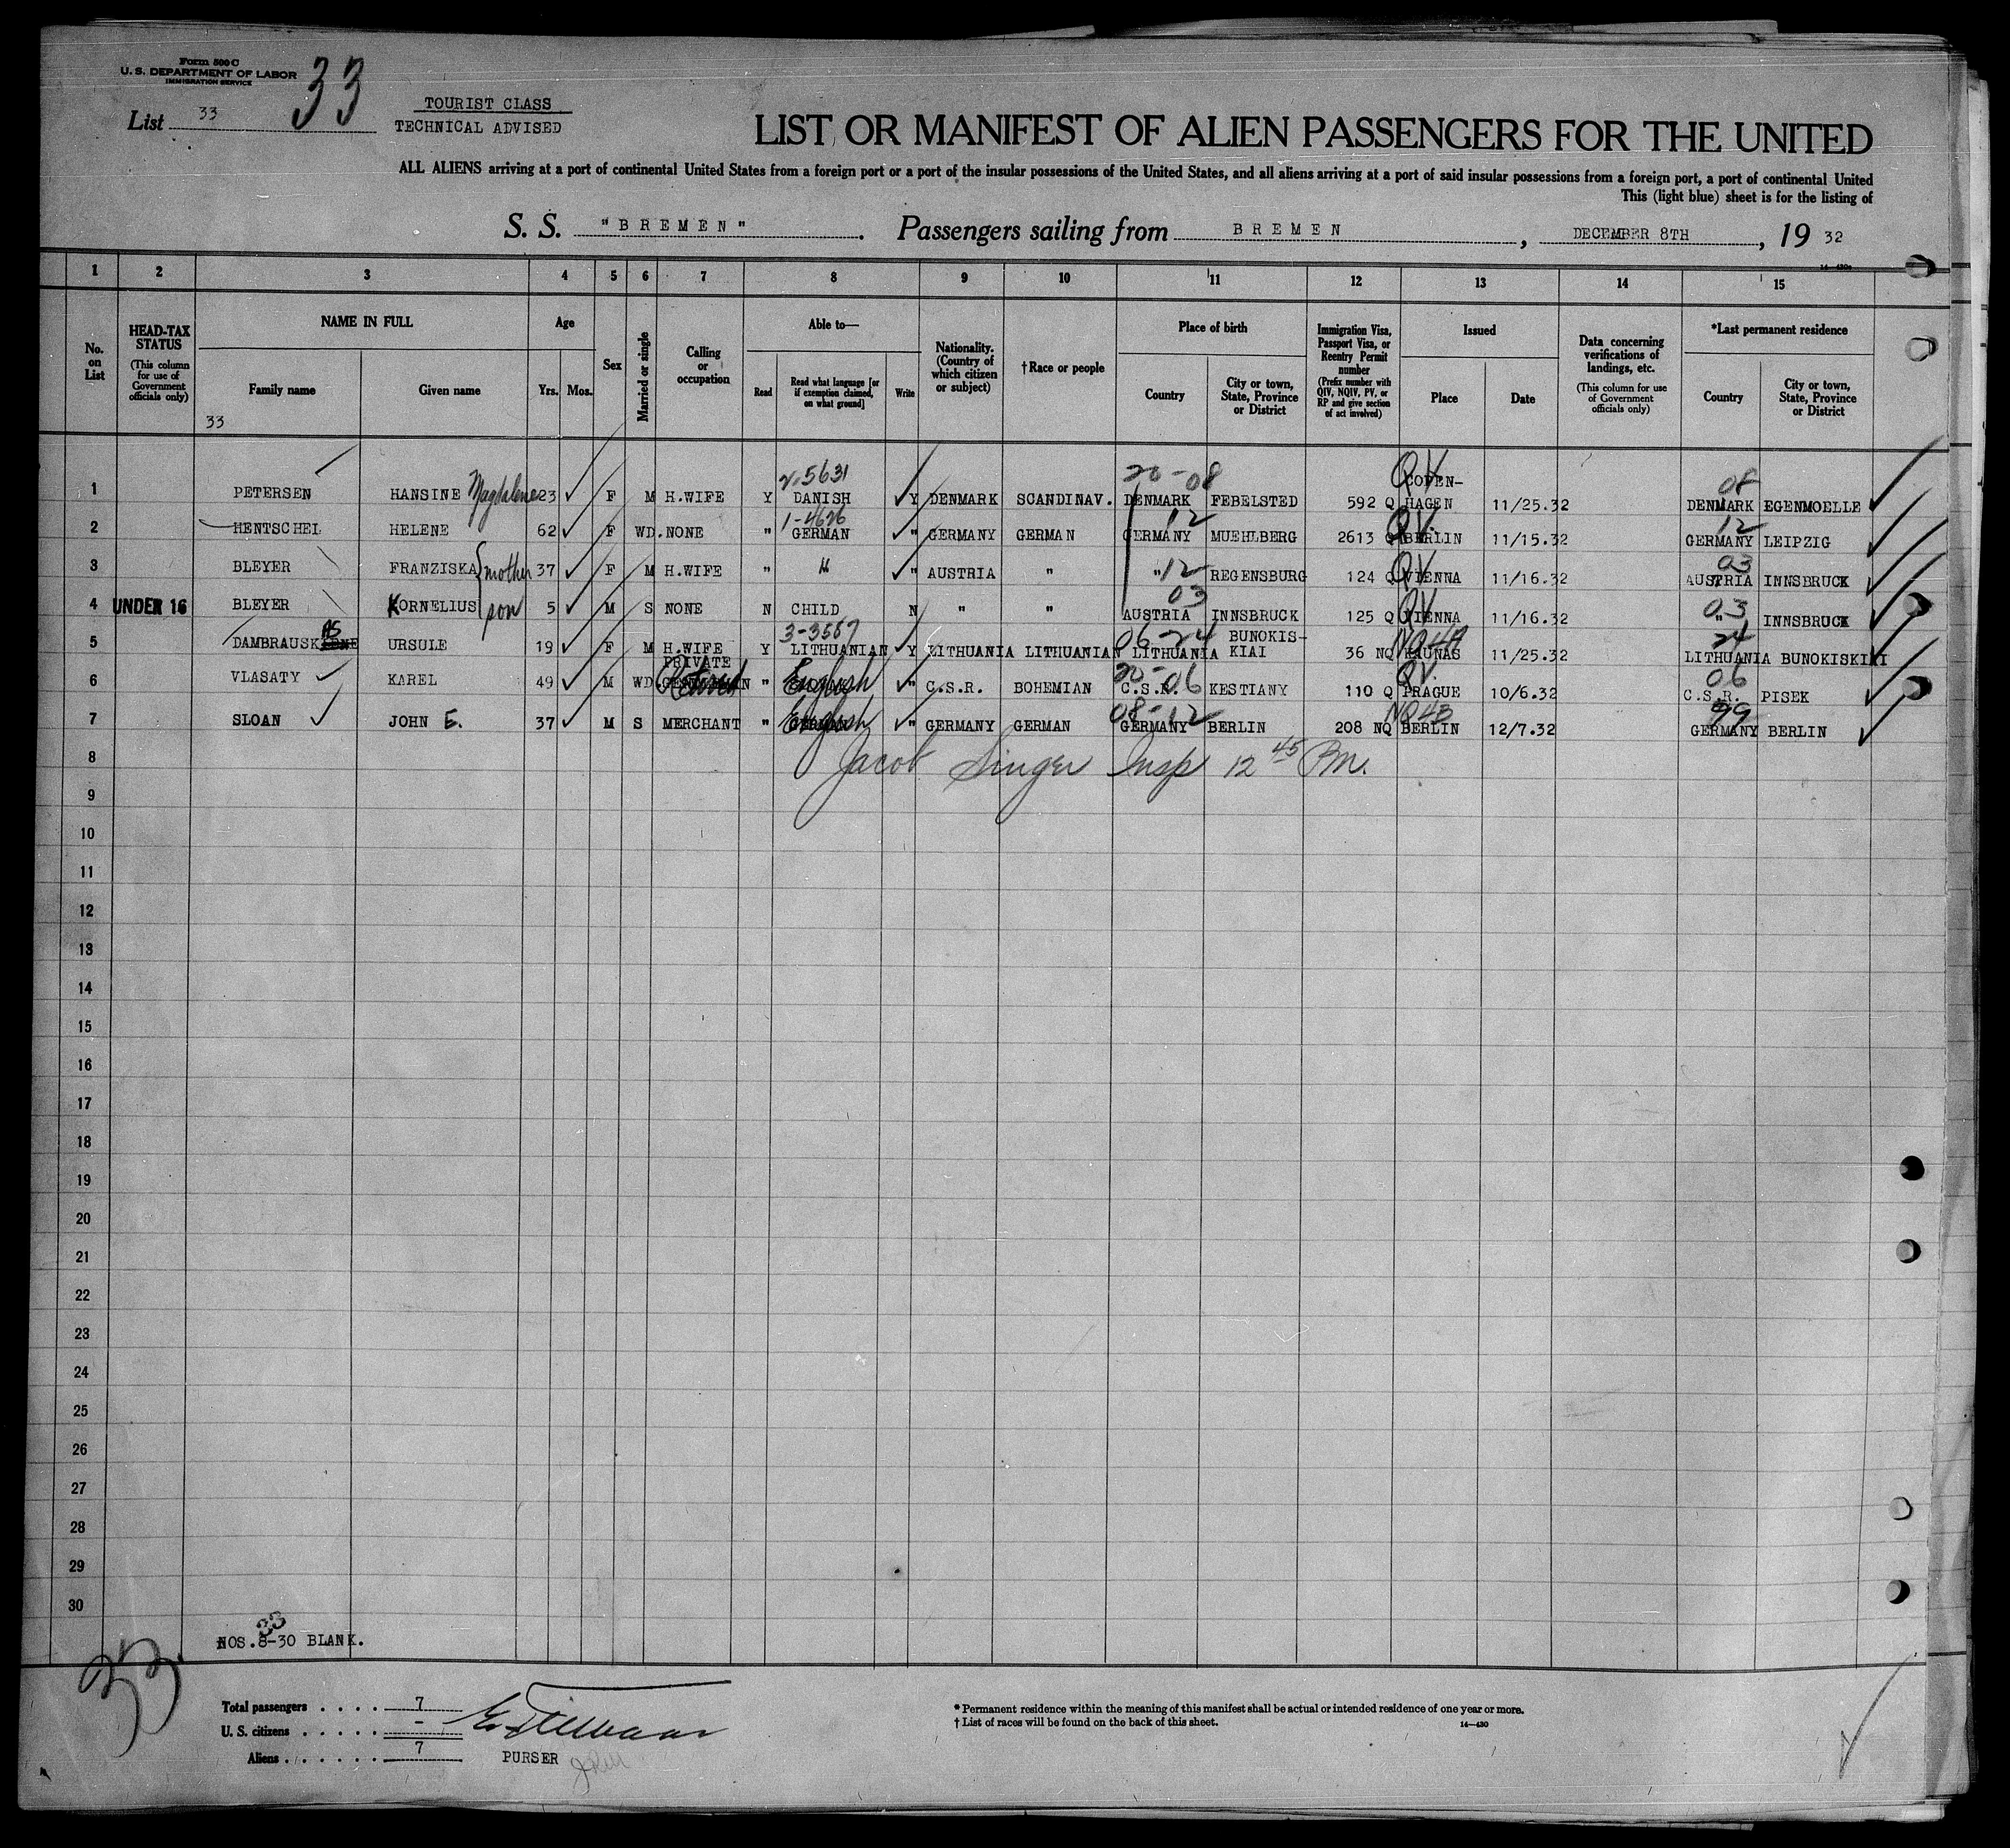 Form 500 C
U. S. DEPARTMENT OF LABOR
IMMIGRATION SERVICE
List 33
33
TOURIST CLASS
TECHNICAL ADVISED
LIST OR MANIFEST OF ALIEN PASSENGERS FOR THE UNITED
ALL ALIENS arriving at a port of continental United States from a foreign port or a port of the insular possessions of the United States, and all aliens arriving at a port of said insular possessions from a foreign port, a port of continental United
This (light blue) sheet is for the listing of
S. S. "BREMEN". Passengers sailing from BREMEN, DECEMBER 8TH, 19 32
1 2 3 4 5 6 7 8 9 10 11 12 13 14 15
No. on List
HEAD-TAX STATUS
(This column for use of Government officials only)
NAME IN FULL
Family name
33
Given name
Age
Yrs. Mos.
Sex
Married or single
Calling or occupation
Able to—
Read
Read what language [or if exemption claimed, on what ground]
Write
Nationality. (Country of which citizen or subject)
† Race or people
Place of birth
Country
City or town, State, Province or District
Immigration Visa, Passport Visa, or Reentry Permit number
(Prefix number with QIV, NQIV, PV, or RP and give section of act involved)
Issued
Place
Date
Data concerning verifications of landings, etc.
(This column for use of Government officials only)
*Last permanent residence
Country
City or town, State, Province or District
5631 20-08 QV COPEN- 08
1 PETERSEN HANSINE Magdalene 23 F M H.WIFE Y DANISH Y DENMARK SCANDINAV. DENMARK FEBELSTED 592 Q HAGEN 11/25.32 DENMARK EGENMOELLE
1-4626 12 QV. 12
2 HENTSCHEL HELENE 62 F WD. NONE " GERMAN " GERMANY GERMAN GERMANY MUEHLBERG 2613 Q BERLIN 11/15.32 GERMANY LEIPZIG
12 QV 03
3 BLEYER FRANZISKA mother 37 F M H.WIFE " " " AUSTRIA " " REGENSBURG 124 Q VIENNA 11/16.32 AUSTRIA INNSBRUCK
03 QV 03
4 UNDER 16 BLEYER KORNELIUS son 5 M S NONE N CHILD N " " AUSTRIA INNSBRUCK 125 Q VIENNA 11/16.32 " INNSBRUCK
AS 3-3567 06-24 BUNOKIS- 24
5 DAMBRAUSK URSULE 19 F M H.WIFE Y LITHUANIAN Y LITHUANIA LITHUANIAN LITHUANIA KIAI 36 NQ KAUNAS 11/25.32 LITHUANIA BUNOKISKIAI
PRIVATE Retired English 20-06 QV. 06
6 VLASATY KAREL 49 M WD. " " C.S.R. BOHEMIAN C.S.R. KESTIANY 110 Q PRAGUE 10/6.32 C.S.R. PISEK
English 08-12 NQ43 99
7 SLOAN JOHN E. 37 M S MERCHANT " " GERMANY GERMAN GERMANY BERLIN 208 NQ BERLIN 12/7.32 GERMANY BERLIN
8 Jacob Singer Insp 12 45 Pm.
9
10
11
12
13
14
15
16
17
18
19
20
21
22
23
24
25
26
27
28
29
30
33
NOS.8-30 BLANK.
33
Total passengers . . . . 7
U. S. citizens . . . . . –
Aliens . . . . . . . 7
PURSER
* Permanent residence within the meaning of this manifest shall be actual or intended residence of one year or more.
† List of races will be found on the back of this sheet.
14—430